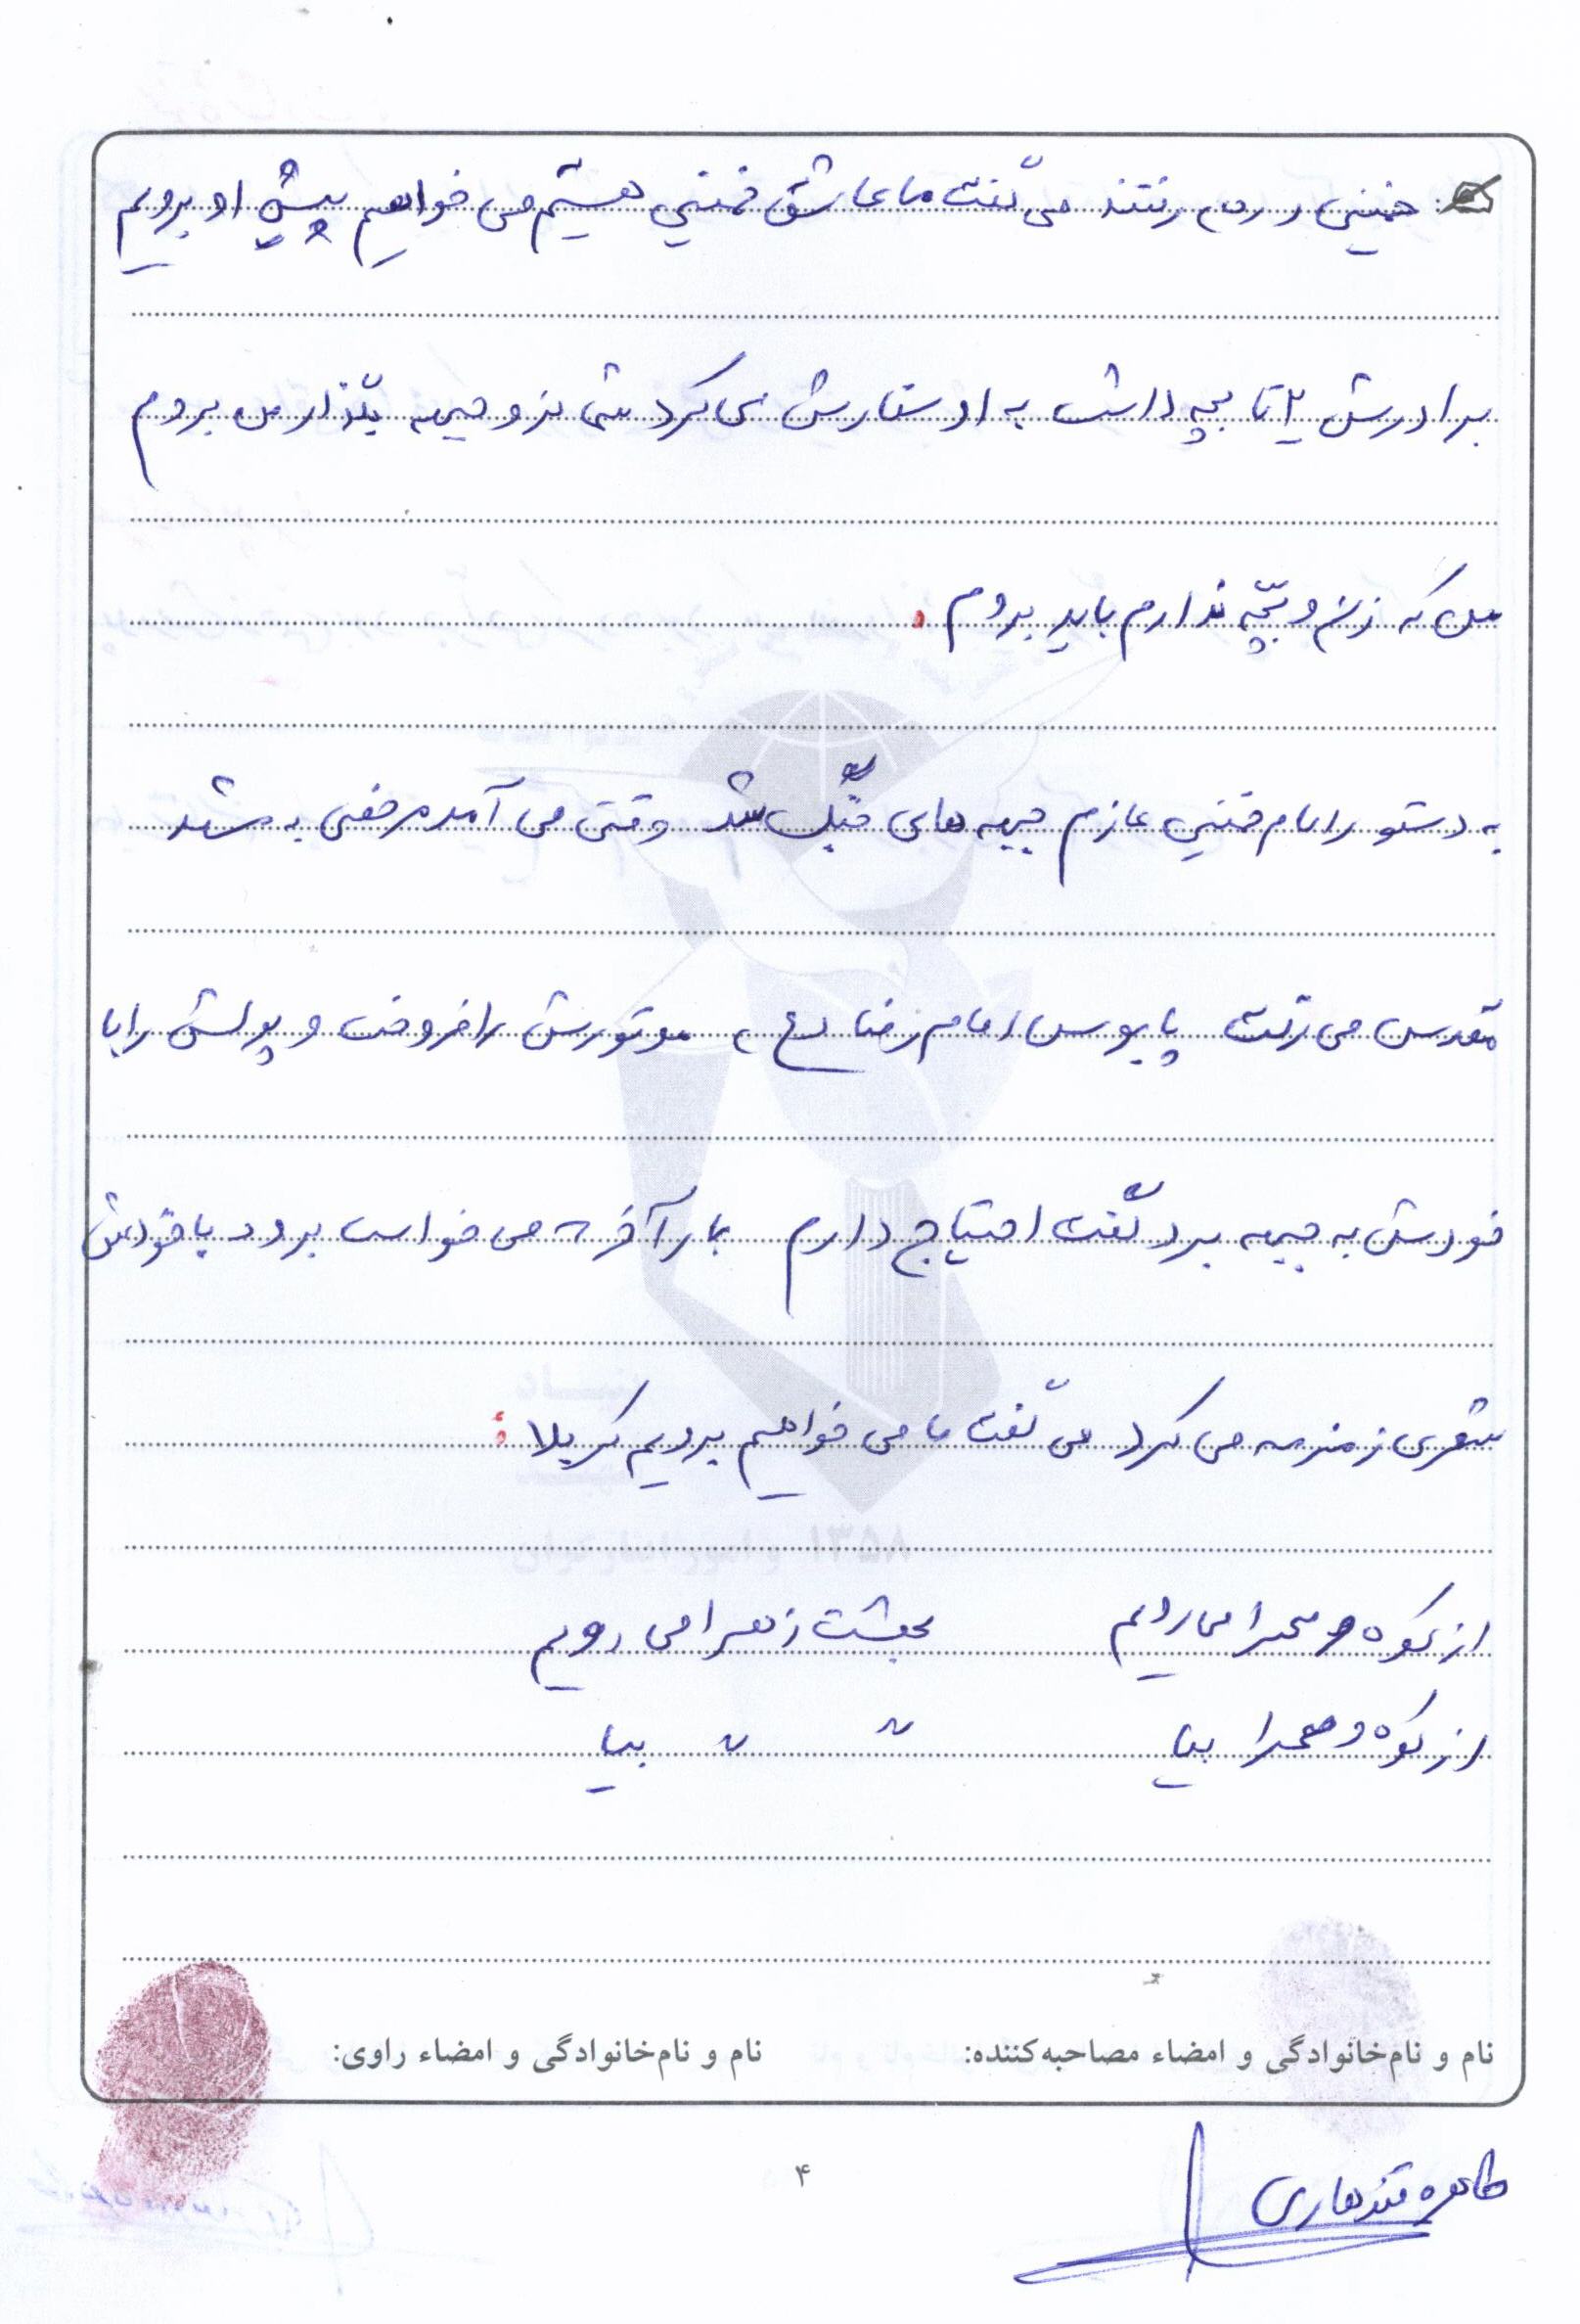 خمینی و ردم رفتند می گفت ما عاشق خمینی هستیم می خواهیم پیش او برویم
برادرش ۲ تا بچه داشت به او سفارش می کرد شما نرو جبهه بگذار من بروم
من که زن و بچّه ندارم باید بروم .
به دستور امام خمینی عازم جبهه های جنگ شد وقتی می آمد مرخصی به مشهد
مقدس می رفت پابوس امام رضا (ع) ، موتورش را فروخت و پولش را با
خودش به جبهه برد گفت احتیاج دارم بار آخر که می خواست برود با خودش
شعری زمزمه می کرد می گفت ما می خواهیم برویم کربلا :
از کوه و صحرا می رویم بهشت زهرا می رویم
از کوه و صحرا بیا " " بیا
نام و نام‌خانوادگی و امضاء مصاحبه‌کننده: نام و نام‌خانوادگی و امضاء راوی:
۴
طاهره قندهاری